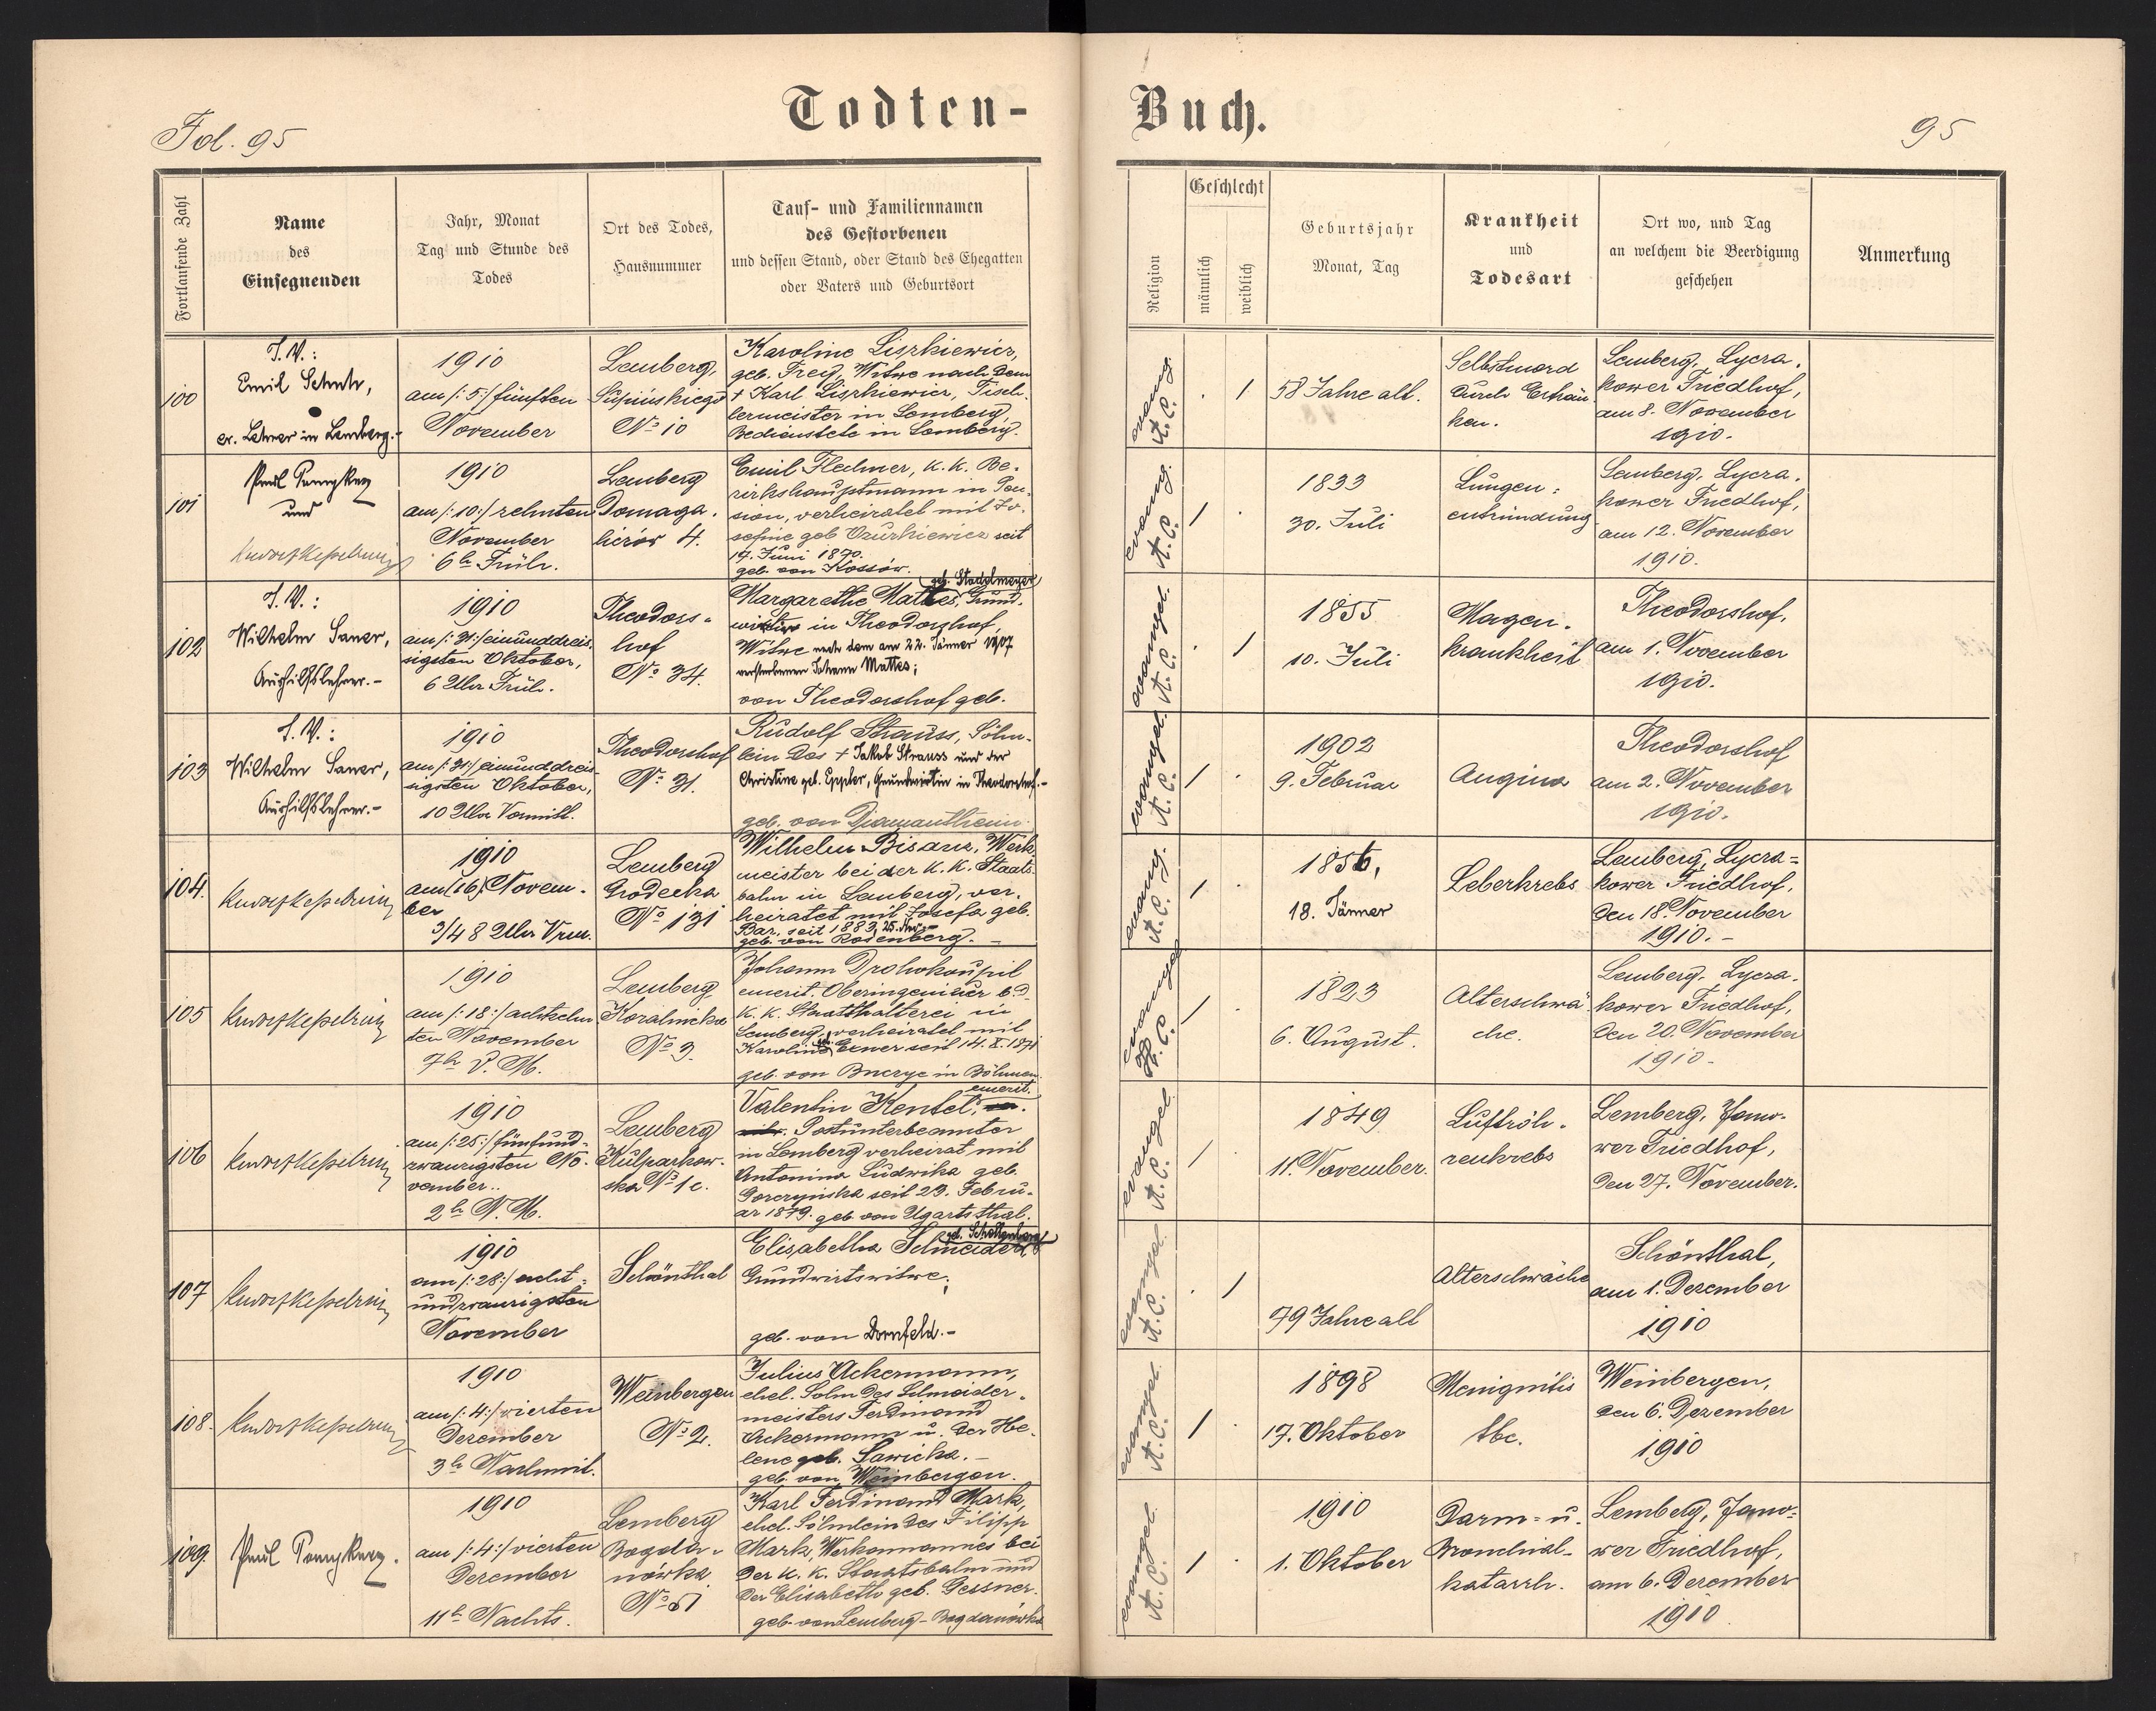 Todten-Buch.
Fol. 95
95
Fortlaufende Zahl
Name
des
Einsegnenden
Jahr, Monat
Tag und Stunde des
Todes
Ort des Todes,
Hausnummer
Tauf- und Familiennamen
des Gestorbenen
und dessen Stand, oder Stand des Ehegatten
oder Vaters und Geburtsort
Religion
Geschlecht
männlich
weiblich
Geburtsjahr
Monat, Tag
Krankheit
und
Todesart
Ort wo, und Tag
an welchem die Beerdigung
geschehen
Anmerkung
100
I. V.:
Emil Schuh,
ev. Lehrer in Lemberg.-
1910
am /:5:/ fünften
November
Lemberg,
No 10
Karoline Liszkiewicz,
geb. Frey, Witwe nach dem
† Karl Liszkiewicz, Tisch-
lermeister in Lemberg,
Bedienstete in Lemberg.
evang.
A. C.
. 1
58 Jahre alt.
Selbstmord
durch Erträn-
ken.
Lemberg, Lycza-
kower Friedhof,
am 8. November
1910.
101
und
1910
am /:10:/ zehnten
November
6h Früh.
Lemberg
Domaga-
liczów 4.
Emil Flechner, k. k. Be-
zirkshauptmann in Pen-
sion, verheiratet mit Jo-
sefine geb. seit
17. Juni 1870.
geb. von Kossów.
evang.
A. C.
1 .
1833
30. Juli
Lungen-
entzündung
Lemberg, Lycza-
kower Friedhof,
am 12. November
1910.
102
I. V.:
Wilhelm Saner,
Aushilfslehrer.-
1910
am /:31:/ einunddreis-
sigsten Oktober,
6 Uhr Früh.
Theodors-
hof
No 34.
geb. Stadelmeyer
Margarethe Mattes, Grund-
wirtin in Theodorshof,
Witwe nach dem am 22. Jänner 1907
verstorbenen Johann Mattes;
von Theodorshof geb.
evangel.
A. C.
. 1
1855
10. Juli
Magen-
krankheit
Theodorshof,
am 1. November
1910.
103
I. V.:
Wilhelm Saner,
Aushilfslehrer.-
1910
am /:31:/ einunddreis-
sigsten Oktober,
10 Uhr Vormitt.
Theodorshof
No 31.
Rudolf Strauss, Söhn-
lein des † Jakob Strauss und der
Christine geb. Eppler, Grundwirtin in Theodorshof.-
geb. von Diamantheim.
evangel.
A. C.
1 .
1902
9. Februar
Angina
Theodorshof
am 2. November
1910.
104.
1910
am (16) Novem-
ber
3/4 8 Uhr Vrm.
Lemberg
Grodecka
No 131
Wilhelm Bisanz, Werk-
meister bei der k. k. Staats-
bahn in Lemberg, ver-
heiratet mit Josefa geb.
Bar, seit 1883, 25.
geb. von Rosenberg. -
evang.
A. C.
1 .
1856,
18. Jänner
Leberkrebs
Lemberg, Lycza-
kower Friedhof,
den 18. November
1910.-
105
1910
am /:18:/ achtzehn-
ten November
7h V. M.
Lemberg,
Koralnicka
No 3.
Johann Drohokoupil
emerit. Oberingenieur b. d.
k. k. Statthalterei in
Lemberg, verheiratet mit
Karoline geb. Exner seit 14. X. 1871
geb. von in Böhmen.
evangel.
H. C.
1 .
1823
6. August.
Alterschwä-
che.
Lemberg, Lycza-
kower Friedhof,
den 20. November
1910.-
106
1910
am /:25:/ fünfund-
zwanzigsten No-
vember.
2h N. M.
Lemberg
Kulparkow-
ska No 1c.
emerit.
Valentin Kentel,
Postunterbeamter
in Lemberg verheirat mit
Antonina Ludwika geb.
Gorczynska seit 23. Febru-
ar 1879. geb. von Ugartsthal.
evangel.
A. C.
1 .
1849
11. November.
Luftröh-
renkrebs
Lemberg, Jano-
wer Friedhof,
den 27. November.
107
1910
am /:28:/ acht-
undzwanzigsten
November
Schönthal
geb. Schollenberger
Elisabetha Schneider,
Grundwirtswitwe;
geb. von Dornfeld.-
evangel.
A. C.
. 1
79 Jahre alt
Alterschwäche
Schönthal,
am 1. Dezember
1910
108.
1910
am /:4:/ vierten
Dezember
3h Nachmit.
Weinbergen
No 2.
Julius Ackermann,
ehel. Sohn des Schneider-
meisters Ferdinand
Ackermann u. der He-
lene geb. Sawicka.-
geb. von Weinbergen.
evangel.
A. C.
1 .
1898
17. Oktober
Menignitis
tbc.
Weinbergen,
den 6. Dezember
1910
109.
1910
am /:4:/ vierten
Dezember
11h Nachts.
Lemberg
Bogda-
nówka
No 51
Karl Ferdinand Mark,
ehel. Söhnlein des Filipp
Mark, Werkmannes bei
der k. k. Staatsbahn und
der Elisabeth geb. Gessner.
geb. von Lemberg-Bogdanówka
evangel.
A. C.
1 .
1910
1. Oktober
Darm- u.
Bronchial-
katarrh.
Lemberg, Jano-
wer Friedhof,
am 6. Dezember
1910